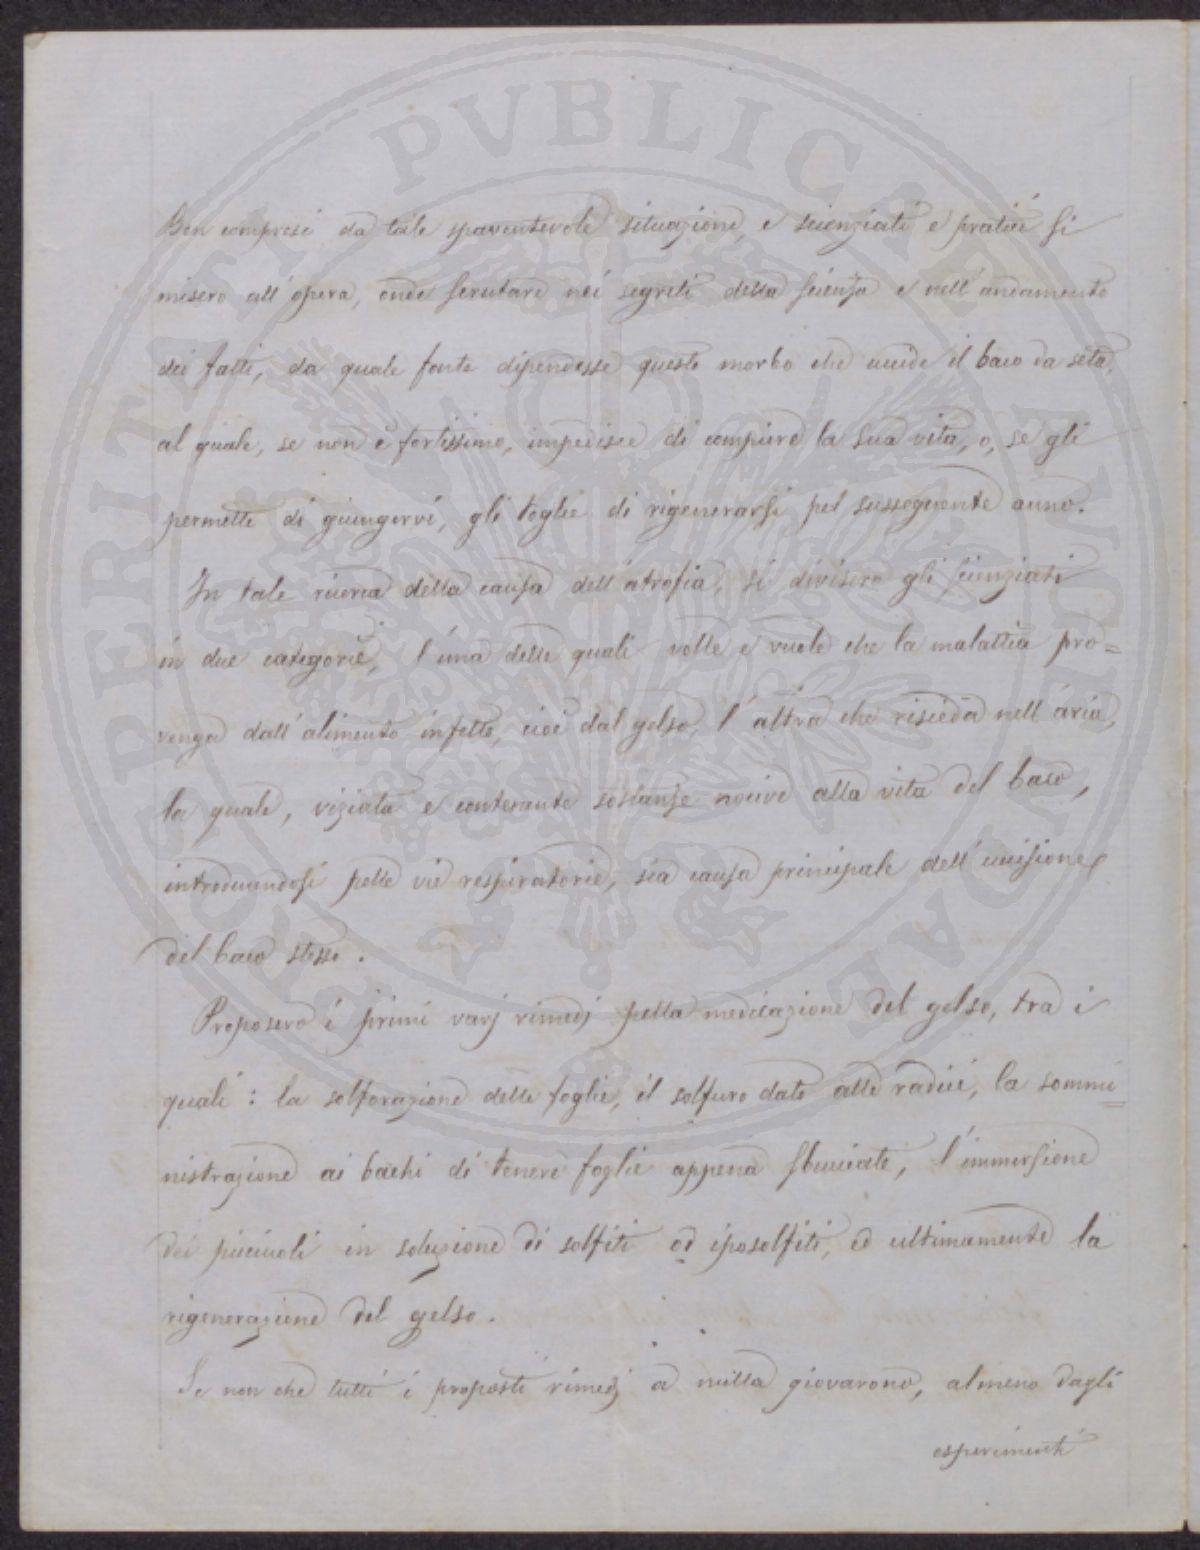 Ben compresi da tale spaventevole situazione, e scienziati e pratici si
misero all'opera, onde scrutare nei segreti della scienza e nell'andamento
dei fatti, da quale fonte dipendesse questo morbo che uccide il baco da seta,
al quale, se non è fortissimo, impedisce di compiere la sua vita, o, se gli
permette di giungervi, gli toglie di rigenerarsi pel susseguente anno.
In tale ricerca della causa dell'atrofia, si divisero gli scienziati
in due categorie, l'una delle quali volle e vuole che la malattia pro=
venga dall'alimento infetto, cioè dal gelso, l'altra che risieda nell'aria,
la quale, viziata e contenente sostanze nocive alla vita del baco,
introducendosi pelle vie respiratorie, sia causa principale dell'uccisione
del baco stesso.
Proposero i primi varj rimedj pella medicazione del gelso, tra i
quali: la solforazione delle foglie, il solfuro dato alle radici, la sommi=
nistrazione ai bachi di tenere foglie appena sbucciate, l'immersione
dei picciuoli in soluzione di solfiti od iposolfiti, ed ultimamente la
rigenerazione del gelso.
Se non che tutti i proposti rimedj a nulla giovarono, almeno dagli
esperimenti
PERITATI PVBLICAE AVCHENDAE